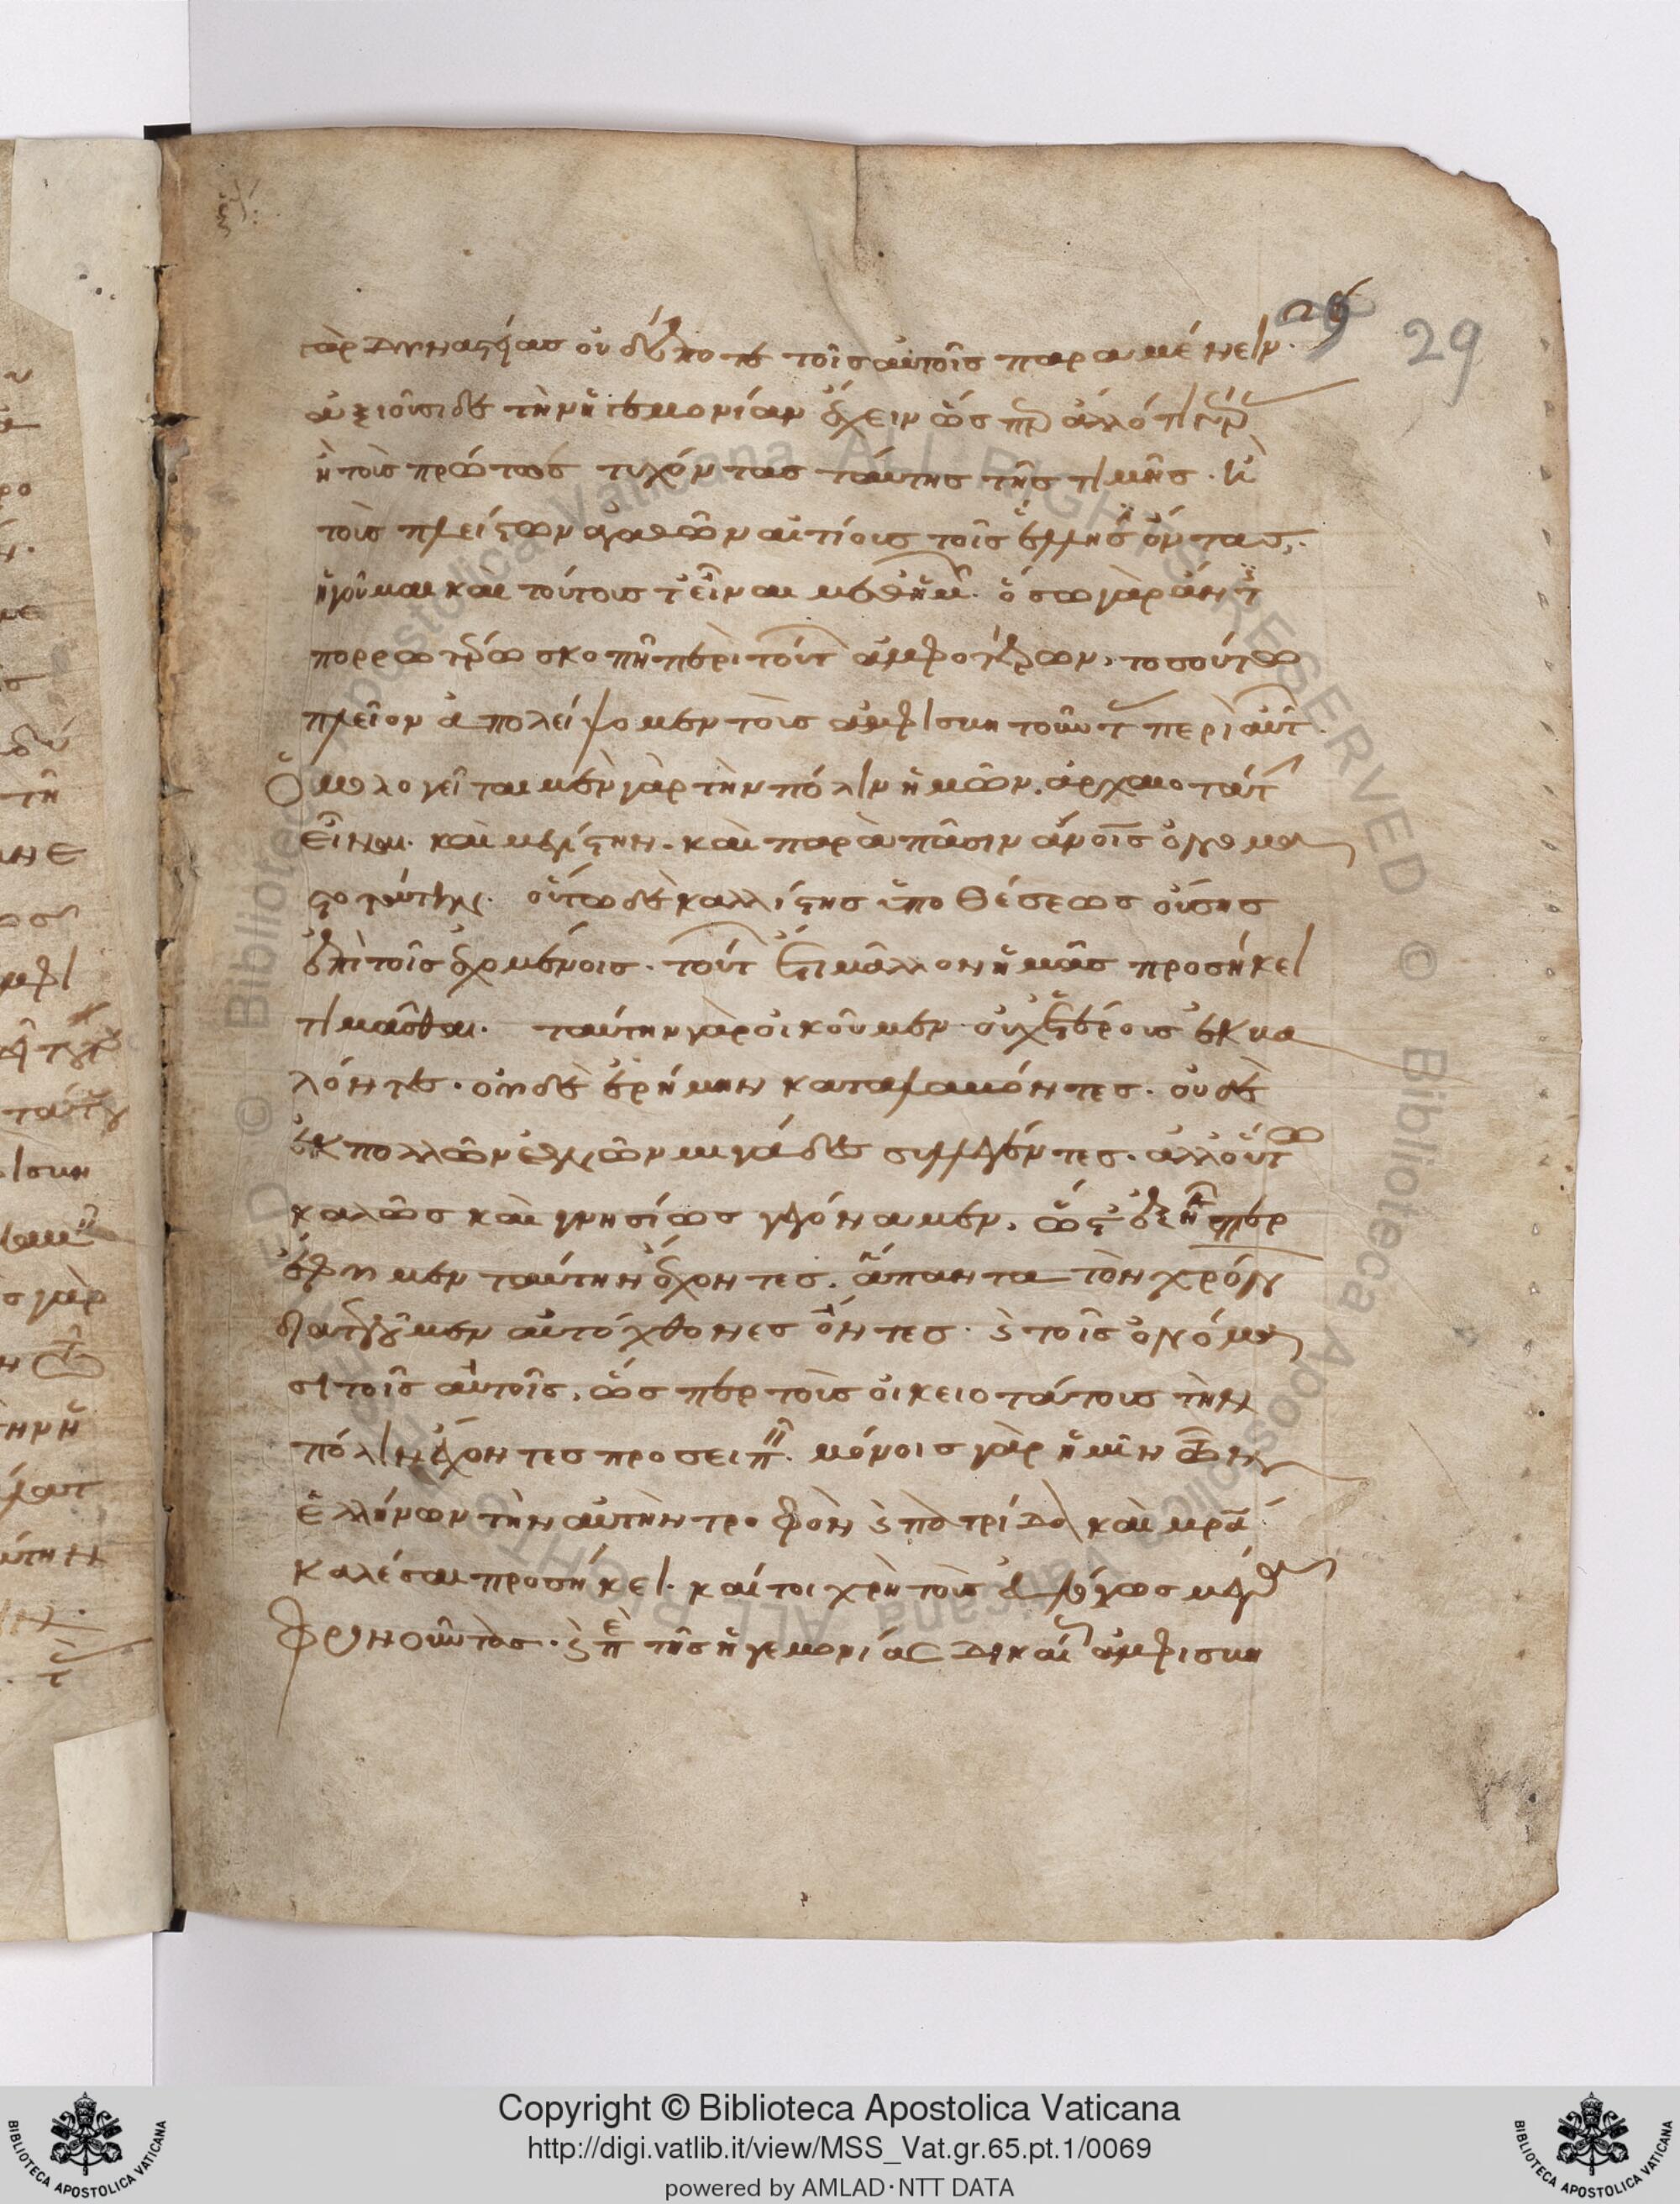 γὰρ δυναστείας οὐδέποτε τοῖς αὐτοῖς παραμένειν·
29
ἀξιοῦσι δὲ τὴν ἡγεμονίαν ἔχειν ὥσπερ ἄλλό τι γέρας
ἢ τοὺς πρώτους τυχόντας ταύτης τῆς τιμῆς· ἢ
τοὺς πλείστων ἀγαθῶν αἰτίους τοῖς ἕλλησιν ὄντας·
ἡγοῦμαι καὶ τούτους εἶναι μεθ' ἡμῶν· ὅσω γὰρ ἄν τις
πορρωτέρω σκοπῆ περὶ τούτων ἀμφοτέρων, τοσούτω
πλεῖον ἀπολείψομεν τοὺς ἀμφισβητοῦντας περὶ αὐτῶν.
Ὁμολογεῖται μὲν γὰρ τὴν πόλιν ἡμῶν, ἀρχαιοτάτην
εἶναι· καὶ μεγίστην· καὶ παρὰ πᾶσιν ἀνοις ὀνομα
στοτάτην· οὕτω δὲ καλλίστης ὑποθέσεως οὔσης
ἐπὶ τοῖς ἐχομένοις· τούτων ἔτι μᾶλλον ἡμᾶς προσήκει
τιμᾶσθαι· ταύτην γὰρ οἰκοῦμεν οὐχ ἑτέρους ἐκβα
λόντες· οὐδὲ ἐρήμην καταλαβόντες· οὐδὲ
ἐκ πολλῶν ἐθνῶν μιγάδες συλλεγέντες· ἀλλ' οὕτω
καλῶς καὶ γνησίως γεγόναμεν, ὥστ' ἐξ ἧσπερ
ἔφυμεν ταύτην ἔχοντες, ἅπαντα τὸν χρόνον
διατελοῦμεν αὐτόχθονες ὄντες· καὶ τοῖς ὀνόμα
σι τοῖς αὐτοῖς, ὥσπερ τοὺς οἰκειοτάτους τὴν
πόλιν ἔχοντες προσειπεῖν· μόνοις γὰρ ἡμῖν τῶν
ἑλλήνων τὴν αὐτὴν τροφὸν καὶ πατρίδα καὶ μρα
καλέσαι προσήκει· καίτοι χρὴ τοὺς εὐλόγως μέγα
φρονοῦντας· καὶ περὶ τῆς ἡγεμονίας δικαίως ἀμφισβη
Copyright © Biblioteca Apostolica Vaticana
http://digi.vatlib.it/view/MSS_Vat.gr.65.pt.1/0069
powered by AMLAD·NTT DATA
BIBLIOTECA APOSTOLICA VATICANA
BIBLIOTECA APOSTOLICA VATICANA